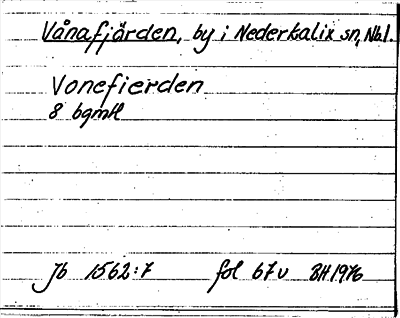 Vånafjärden, by i Nederkalix sn, Nbl.
Vonefierden
8 bgmtl
Jb 1562:7 fol 67v BH 1976